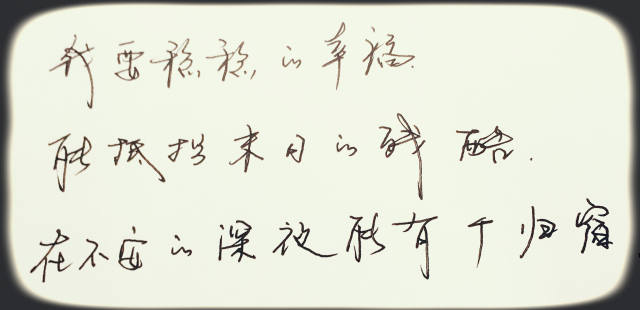 我要稳稳的幸福.
能抵挡末日的残酷.
在不安的深夜能有个归宿